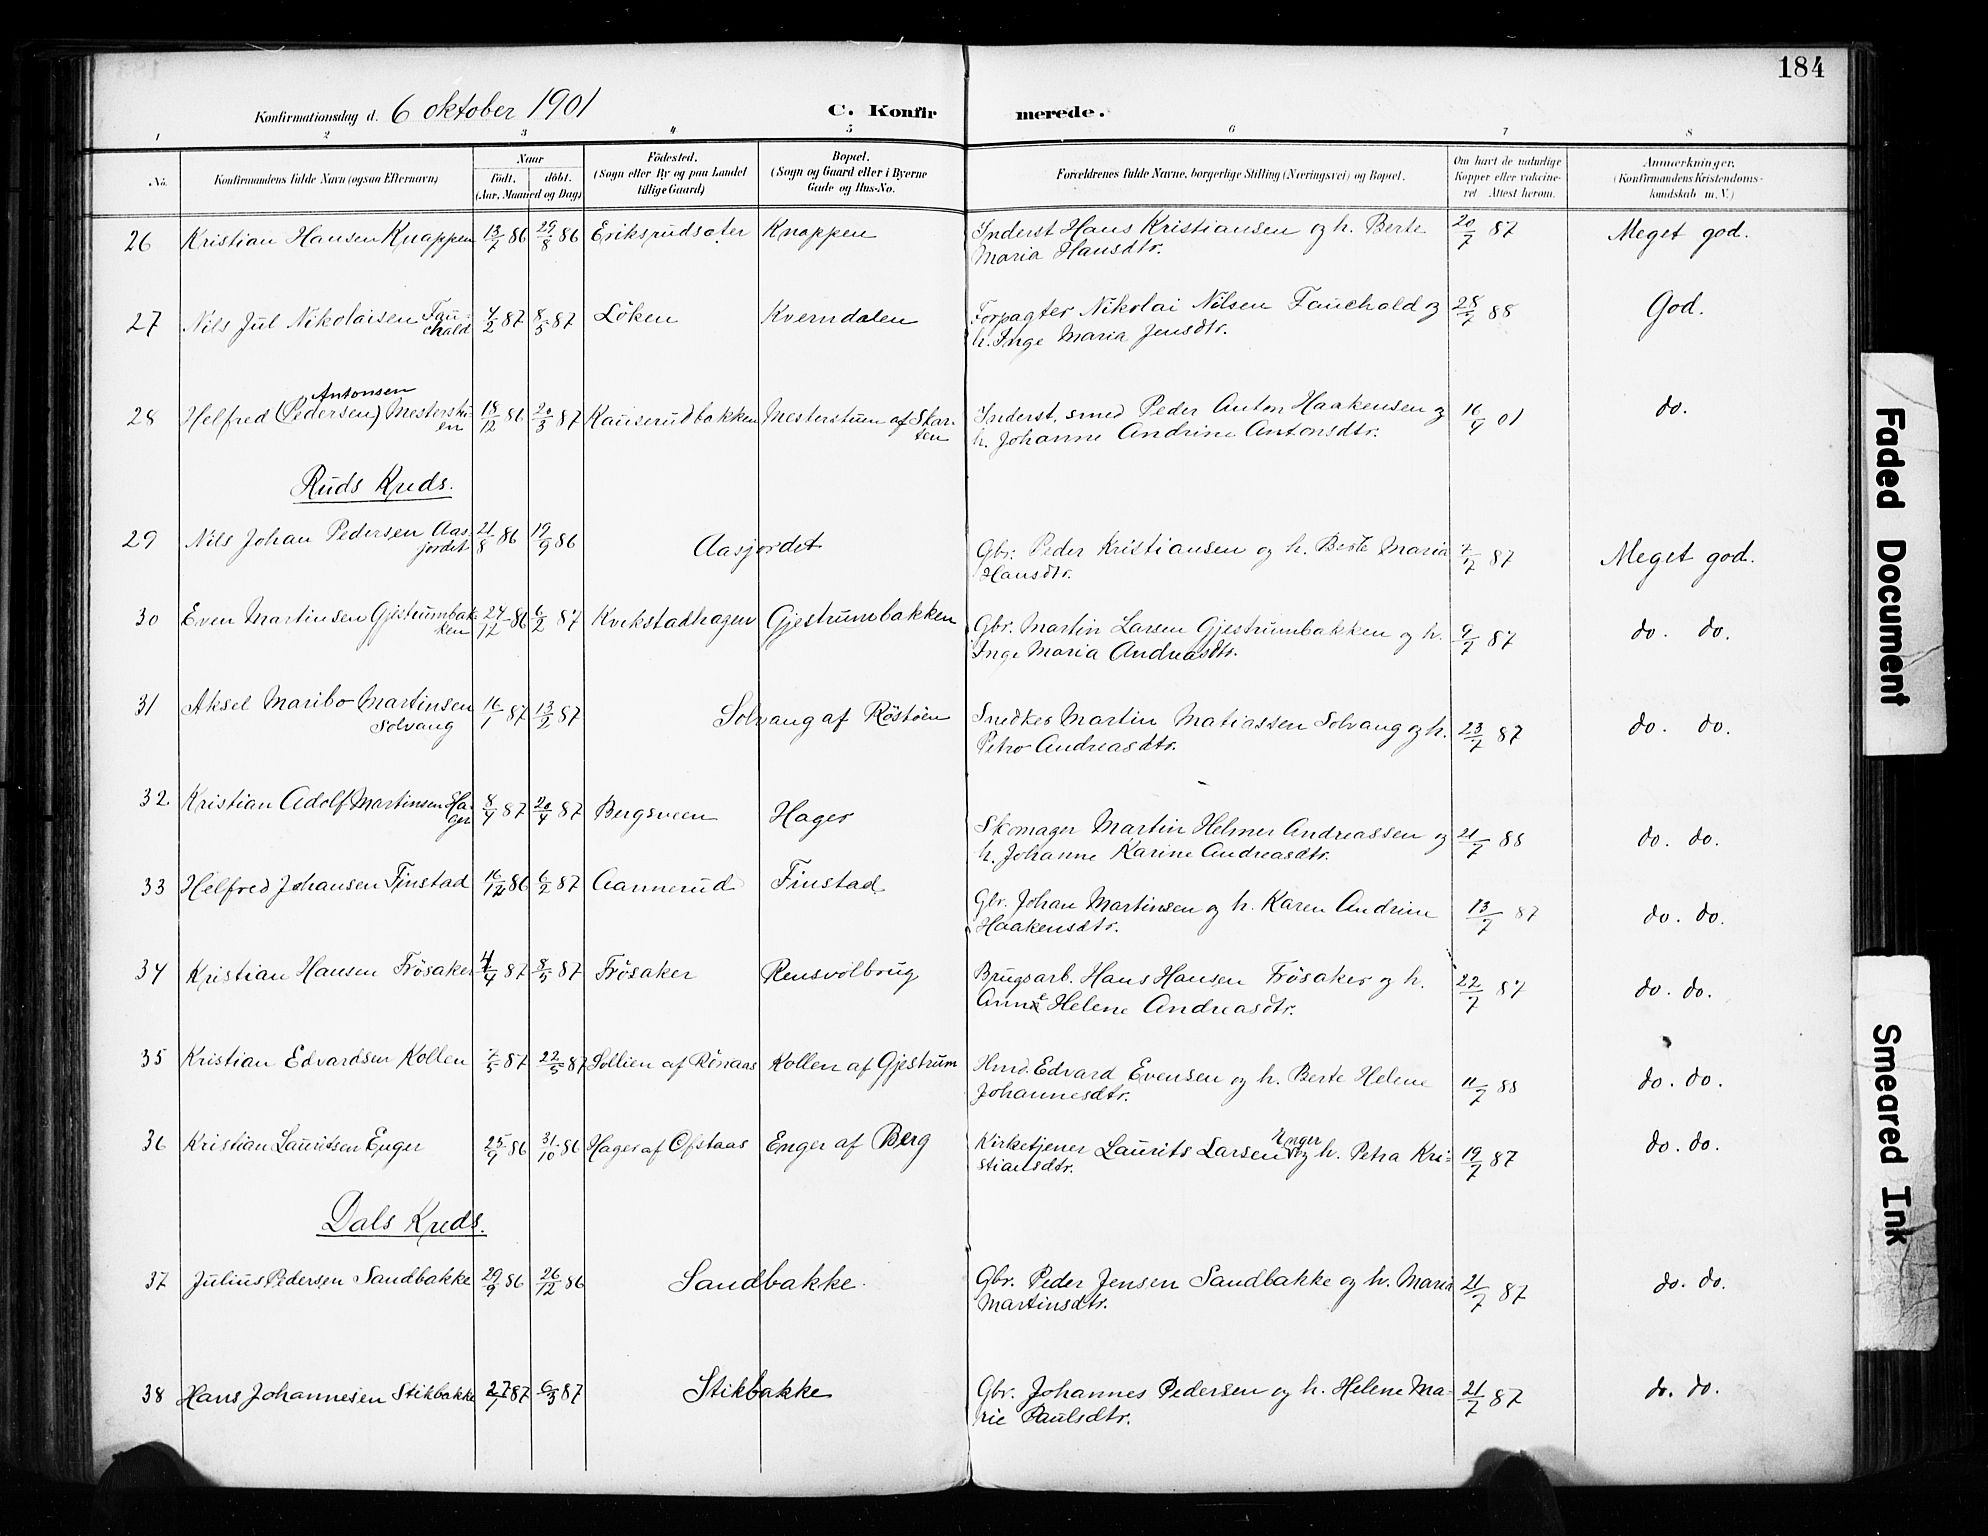 184
Konfirmationsdag d. 6 oktober 1901 C. Konfirmerede.
1 2 3 4 5 6 7 8
No. Konfirmandens fulde Navn (ogsaa Efternavn) Naar født. døbt. (Aar, Maaned og Dag) Fødested. (Sogn eller By og paa Landet tillige Gaard) Bopæl. (Sogn og Gaard eller i Byerne Gade og Hus-No. Forældrenes fulde Navne, borgerlige Stilling (Næringsvei) og Bopæl. Om havt de naturlige Kopper eller vaccineret Attest herom. Anmærkninger, (Konfirmandens Kristendomskundskab m. V.)
26 Kristian Hansen Knappen 13/7 86 29/8 86 Eriksrudsæter Knappen Inderst Hans Kristiansen og h. Berte 20/7 87 Meget god.
Maria Hansdtr.
27 Nils Jul Nikolaisen Fauchald 4/2 87 8/5 87 Löken Kverndalen Forpagter Nikolai Nilsen Fauchald og 28/7 88 God.
h. Inge Maria Jensdtr.
Antonsen
28 Helfred (Pedersen) Mesterstuen 18/12 86 20/3 87 Kauserudbakken Mesterstuen af Skarsten Inderst, smed Peder Anton Haakensen og 16/9 01 do.
h. Johanne Andrine Antonsdtr.
Ruds Kreds.
29 Nils Johan Pedersen Aasjordet 21/8 86 19/9 86 Aasjordet Gbr. Peder Kristiansen og h. Berte Maria 7/7 87 Meget god.
Hansdtr.
30 Even Martinsen Gjestrumbakken 24/12 86 6/2 87 Kvikstadhagen Gjestrumbakken Gbr. Martin Larsen Gjestrumbakken og h. 9/7 87 do. do.
Inge Maria Andreasdtr.
31 Aksel Maribo Martinsen Solvang 16/1 87 13/2 87 Solvang af Röstöen Snedker Martin Matiassen Solvang og h. 23/7 87 do. do.
Petra Andreasdtr.
32 Kristian Adolf Martinsen Hager 8/4 87 20/4 87 Bergsveen Hager Skomager Martin Helmer Andreassen og 21/7 88 do. do.
h. Johanne Karine Andreasdtr.
33 Helfred Johansen Finstad 16/12 86 6/2 87 Aannerud Finstad Gbr. Johan Martinsen og h. Karen Andrine 13/7 87 do. do.
Haakensdtr.
34 Kristian Hansen Frösaker 4/4 87 8/5 87 Frösaker Rensvolbrug Brugsarb. Hans Hansen Frösaker og h. 22/7 87 do. do.
Anne Helene Andreasdtr.
35 Kristian Edvardsen Kollen 7/5 87 22/5 87 Sollien af Rönaas Kollen af Gjestrum Hmd. Edvard Evensen og h. Berte Helene 11/7 88 do. do.
Johannesdtr.
36 Kristian Lauritsen Enger 25/9 86 31/10 86 Hager af Ofstaas Enger af Berg Kirketjener Laurits Larsen Enger og h. Petra Kri- 19/7 87 do. do.
stiansdtr.
Dals Kreds.
37 Julius Pedersen Sandbakke 29/9 86 26/12 86 Sandbakke Gbr. Peder Jensen Sandbakke og h. Maria 21/7 87 do. do.
Martinsdtr.
38 Hans Johannesen Stikbakke 27/1 87 6/3 87 Stikbakke Gbr. Johannes Pedersen og h. Helene Ma- 21/7 87 do. do.
rie Paulsdtr.
Faded Document
Smeared Ink